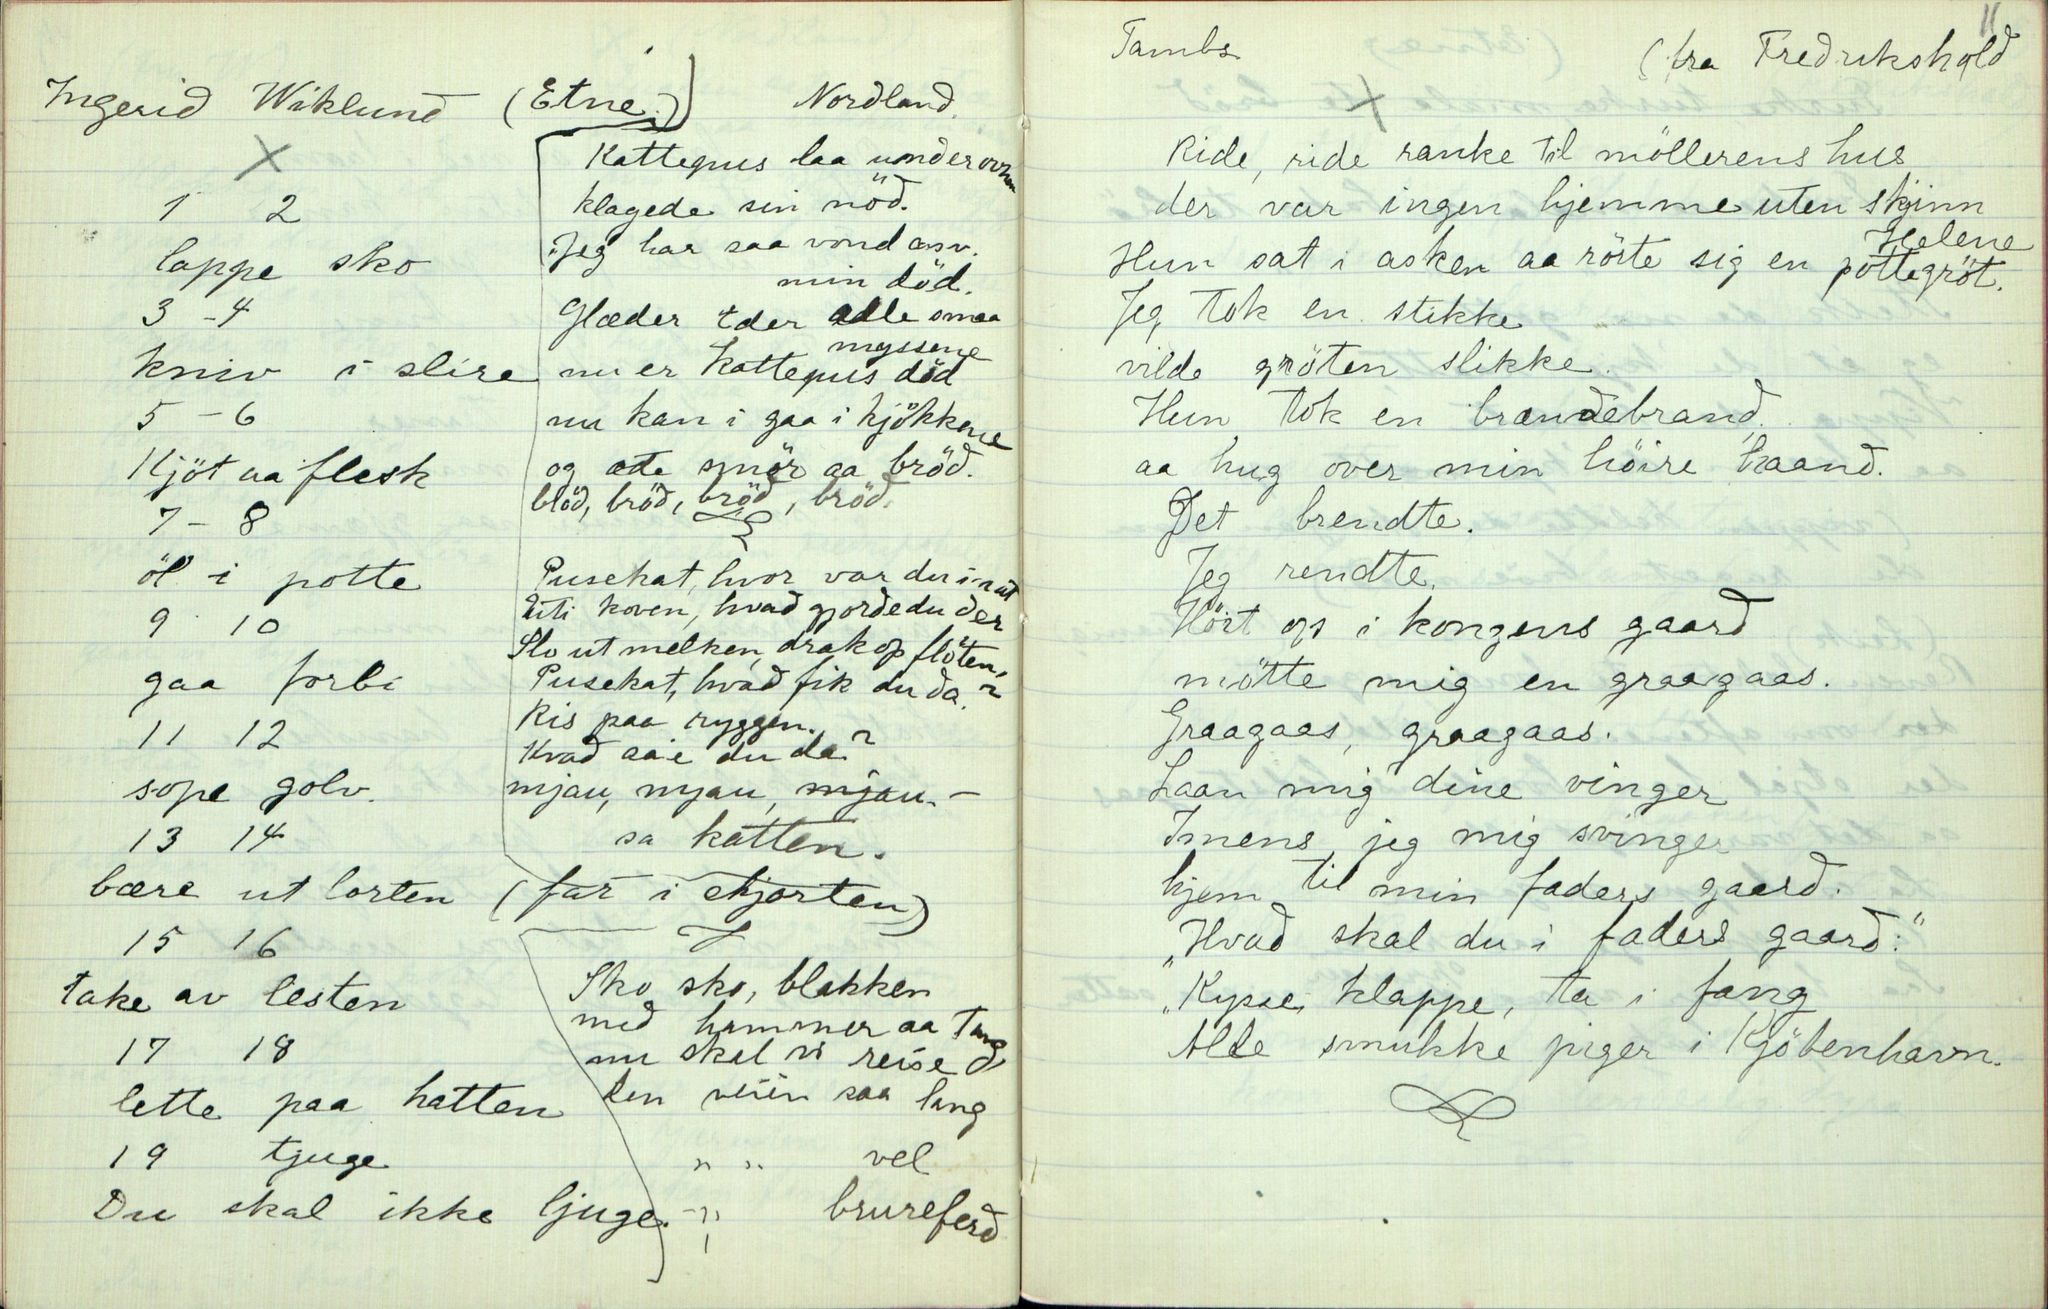 Ingerid Wiklund (Etne) Nordland.
1 2
lappe sko
3 - 4
kniv i slire
5 - 6
Kjöt aa flesk
7 - 8
öl i potte
9 10
gaa forbi
11 12
sope golv.
13 14
bære ut lorten (far i skjorten)
15 16
take av lesten
17 18
lette paa hatten
19 tjuge
Du skal ikke ljuge.
Kattepus laa under ovnen
klagede sin nöd.
Jeg har saa vond
min död.
Glæder eder alle smaa
myssene
nu er kattepus död
nu kan i gaa i kjökkene
og æte smör aa bröd.
blöd, bröd, bröd, bröd.
Pusekat, hvor var du i nat
Uti koven, hvad gjorde du der
Slo ut melken, drak op flöten
Pusekat, hvad fik du da?
Ris paa ryggen.
Kvad sa'e du da?
mjau, mjau, mjau. -
sa katten.
Sko sko, blakken
med hammer aa tang
nu skal vi reise
den veiin saa lang
" " vel
" brureferd
11
Tambs (fra Fredrikshald
Ride, ride ranke til möllerens hus
der var ingen hjemme uten skjinn
Helene
Hun sat i asken aa rörte sig en pottegröt.
Jeg tok en stikke
vilde gröten slikke.
Hun tok en brændebrand
aa hug over min höire haand.
Det brendte.
Jeg rendte.
Höit op i kongens gaard
mötte mig en graagaas.
Graagaas, graagaas.
Laan mig dine vinger
Imens jeg mig svinger
hjem til min faders gaard.
"Hvad skal du i faders gaard:"
"Kysse, klappe, ta i fang
Alle smukke piger i Kjöbenhavn.